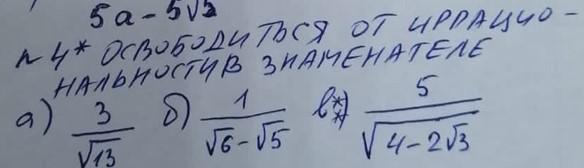 5a-5√3
N4* ОСВОБОДИТЬСЯ ОТ ИРРАЦИО-
НАЛЬНОСТИ В ЗНАМЕНАТЕЛЕ
а) 3/√13 б) 1/(√6-√5) в**) 5/√(4-2√3)